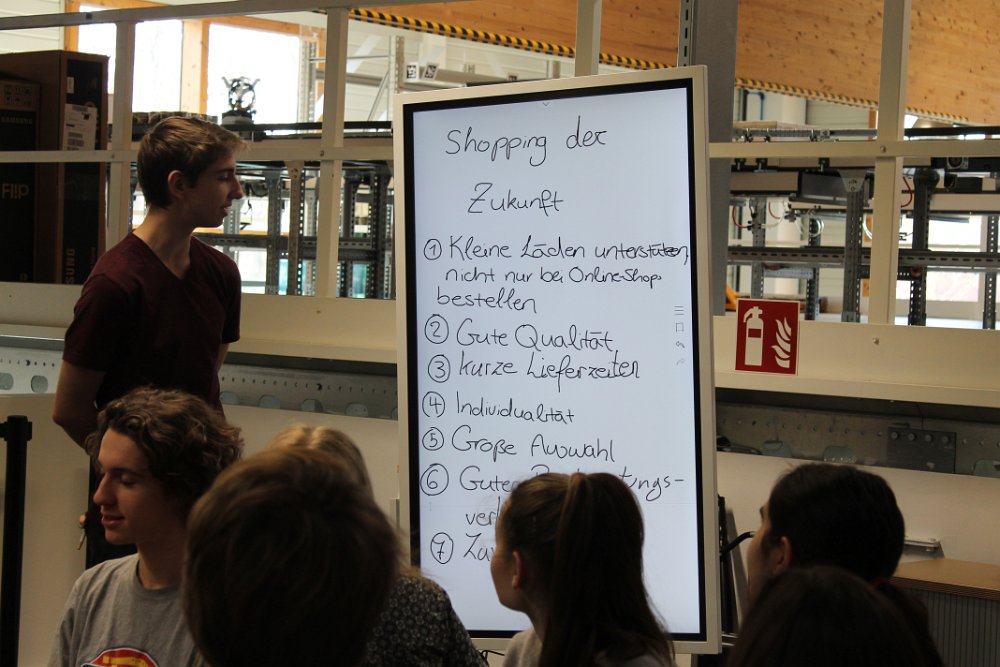 Shopping der
Zukunft
① Kleine Läden unterstützen,
nicht nur bei Online-Shops
bestellen
② Gute Qualität
③ kurze Lieferzeiten
④ Individualität
⑤ Große Auswahl
⑥
⑦
SAMSUNG
Flip
SAMSUNG